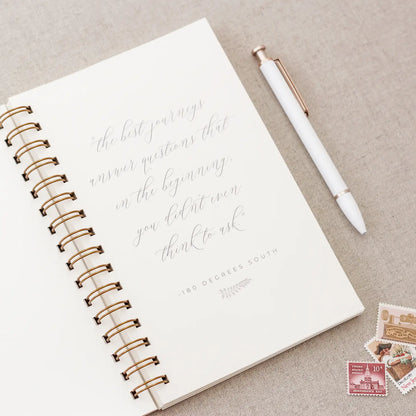 "the best journeys
answer questions that
in the beginning,
you didn't even
think to ask"
-180 DEGREES SOUTH
10¢